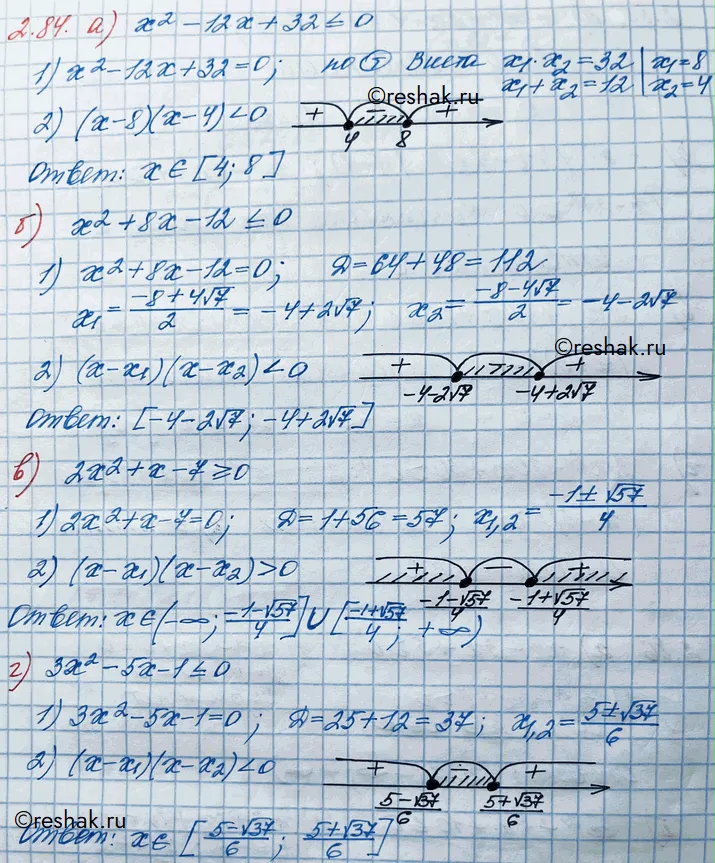 2.84. а) x² - 12x + 32 ≤ 0
1) x² - 12x + 32 = 0; по Т Виета x₁·x₂ = 32 | x₁ = 8
x₁ + x₂ = 12 | x₂ = 4
©reshak.ru
2) (x-8)(x-4) < 0 + - +
4 8
Ответ: x ∈ [4; 8]
б) x² + 8x - 12 ≤ 0
1) x² + 8x - 12 = 0; Д = 64 + 48 = 112
x₁ = (-8+4√7)/2 = -4+2√7; x₂ = (-8-4√7)/2 = -4-2√7
©reshak.ru
2) (x-x₁)(x-x₂) < 0 + - +
-4-2√7 -4+2√7
Ответ: [-4-2√7; -4+2√7]
в) 2x² + x - 7 ≥ 0
1) 2x² + x - 7 = 0; Д = 1 + 56 = 57; x₁,₂ = (-1±√57)/4
2) (x-x₁)(x-x₂) > 0 + - +
(-1-√57)/4 (-1+√57)/4
Ответ: x ∈ (-∞; (-1-√57)/4] ∪ [(-1+√57)/4; +∞)
г) 3x² - 5x - 1 ≤ 0
1) 3x² - 5x - 1 = 0; Д = 25 + 12 = 37; x₁,₂ = (5±√37)/6
2) (x-x₁)(x-x₂) < 0 + - +
(5-√37)/6 (5+√37)/6
©reshak.ru
Ответ: x ∈ [(5-√37)/6; (5+√37)/6]